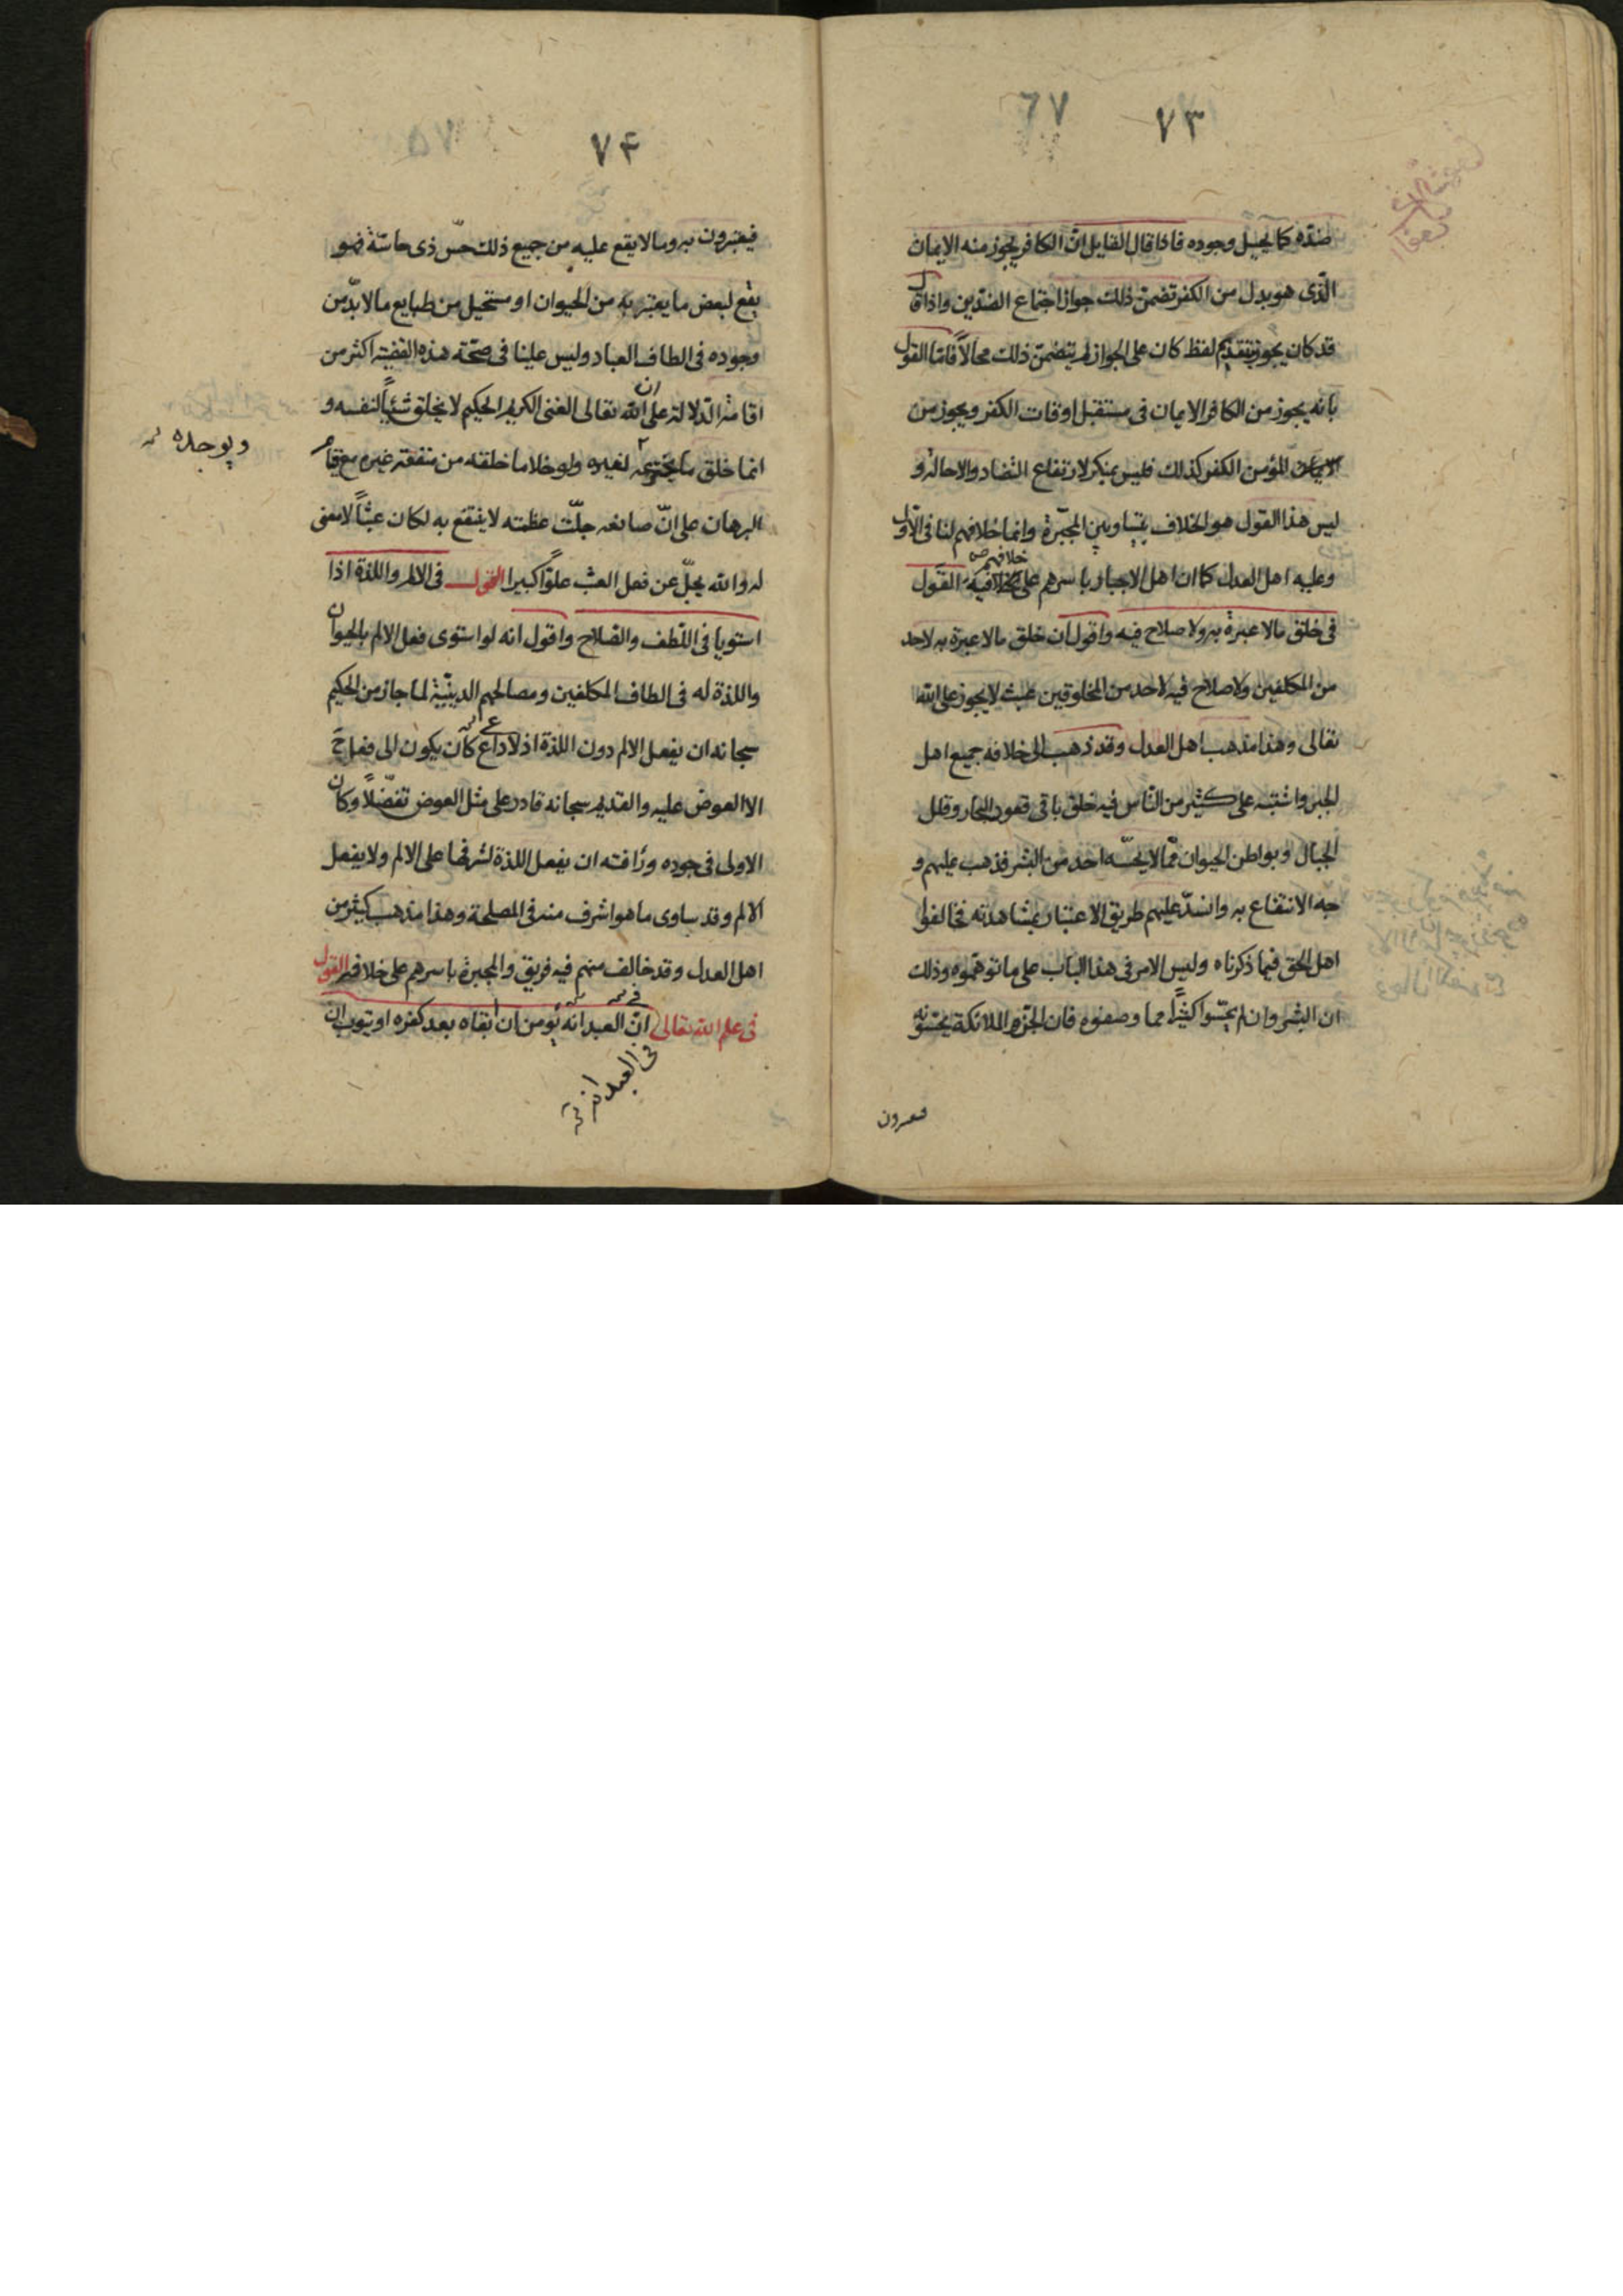 ٧٣
٦٧
ضدّه كما يحيل وجوده فاذا قال القايل انّ الكافر يجوز منه الايمان
الّذى هو بدل من الكفر تضمّن ذلك جواز اجتماع الضدّين واذا قال
قد كان يجوز بتقديم لفظ كان على الجواز لم يتضمّن ذلك محالاً فامّا القول
بانه يجوز من الكافر الايمان فى مستقبل اوقات الكفر ويجوز من
المؤمن الكفر كذلك فليس بمنكر لارتفاع التضاد والاحالة و
ليس هذا القول هو الخلاف بيننا وبين المجبّرة وانما خلافهم لنا فى الاوّل
خلافهم
وعليه اهل العدل كما ان اهل الاجبار باسرهم على خلافه القول
فى خلق مالا عبرة به ولا صلاح فيه واقول ان خلق مالا عبرة به لاحد
من المكلفين ولا صلاح فيه لاحد من المخلوقين عبث لا يجوز على الله
تعالى وهذا مذهب اهل العدل وقد ذهب الى خلافه جميع اهل
الجبر واشتبه على كثير من النّاس فيه خلق باقى قعور البحار وقلل
الجبال وبواطن الحيوان ممّا لا يحسّه احد من البشر فذهب عليهم و
جه الانتفاع به وانسدّ عليهم طريق الاعتبار بمشاهدته فخالفوا
اهل الحق فيما ذكرناه وليس الامر فى هذا الباب على ما توهّموه وذلك
ان البشر وان لم يحسّوا كثيراً مما وصفوه فان الجنّ والملائكة يحسّونه
٧۴
٥٧
فيعتبرون به وما لا يقع عليه من جميع ذلك حسّ ذى حاسّة فهو
يقع لبعض ما يعتبر به من الحيوان او مستحيل من طبايع ما لا بدّ من
وجوده فى الطاف العباد وليس علينا فى صحّة هذه القضيّة اكثر من
ان
اقامة الدّلالة على الله تعالى الغنى الكريم الحكيم لا يخلق شيئاً لنفسه و
انما خلق ما يخترعه لغيره ولو خلا ما خلقه من منفعة غيره مع قيام
ويوجده
البرهان على انّ صانعه جلّت عظمته لا ينتفع به لكان عبثاً لا معنى
له والله يجلّ عن فعل العبث علوّاً كبيرا القول فى الالم واللذة اذا
استويا فى اللّطف والصّلاح واقول انه لو استوى فعل الالم بالحيوان
واللذة له فى الطاف المكلفين ومصالحهم الدينيّة لما جاز من الحكيم
سبحانه ان يفعل الالم دون اللذة اذ لا داعى كان يكون الى فعله ح
الا العوض عليه والقديم سبحانه قادر على مثل العوض تفضّلاً وكان
الاولى فى جوده ورأفته ان يفعل اللذة لشرفها على الالم ولا يفعل
الالم وقد ساوى ما هو اشرف منه فى المصلحة وهذا مذهب كثير من
اهل العدل وقد خالف منهم فيه فريق والمجبرة باسرهم على خلافهم القول
فى علم الله تعالى انّ العبد انه يؤمن ان ابقاه بعد كفره او يتوب ان
فى العبد انه